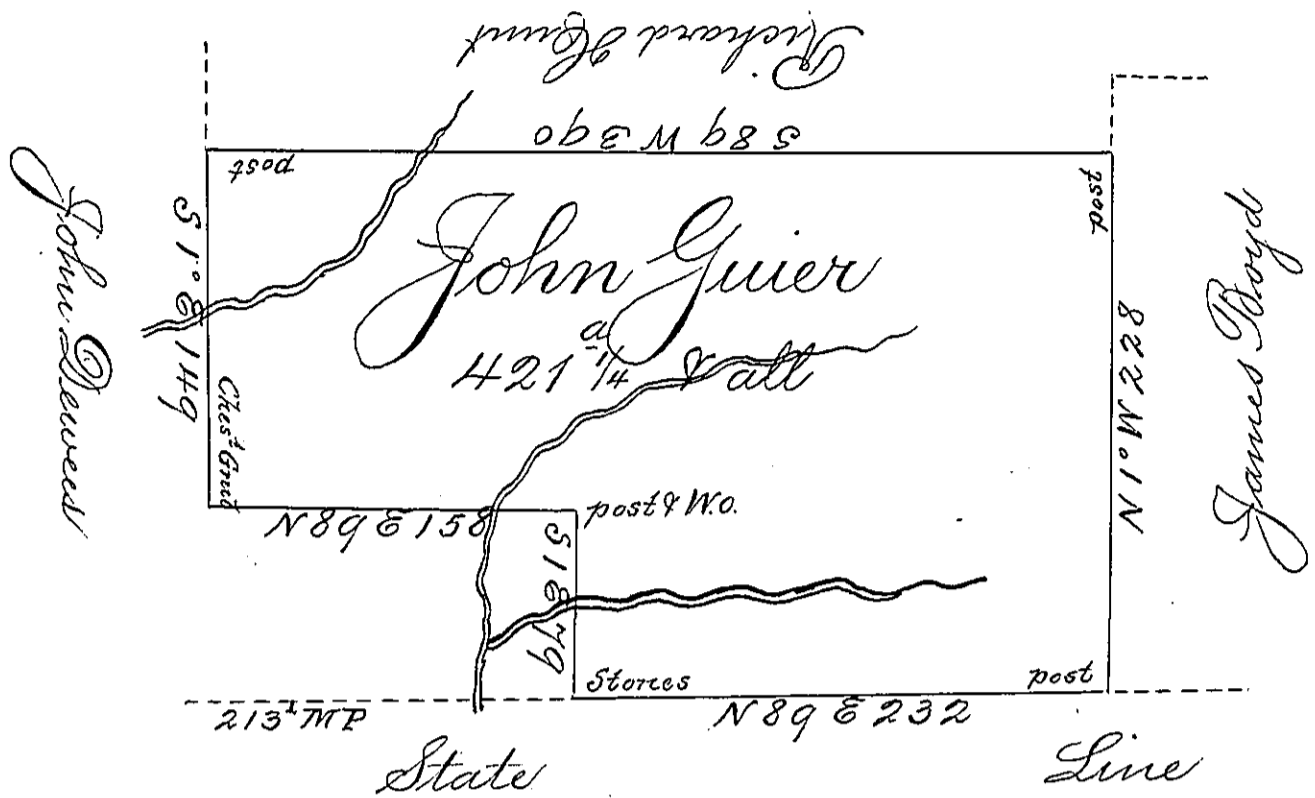 Richard Hunt
S 89 W 390
post
post
John Dewees
S 1° E 149
John Guier
421 a 1/4 & all
N 1° W 228
James Boyd
Ches.t Grub
N 89 E 158
post & W.O.
S 1 E 79
Stones
post
213t MP
N 89 E 232
State Line